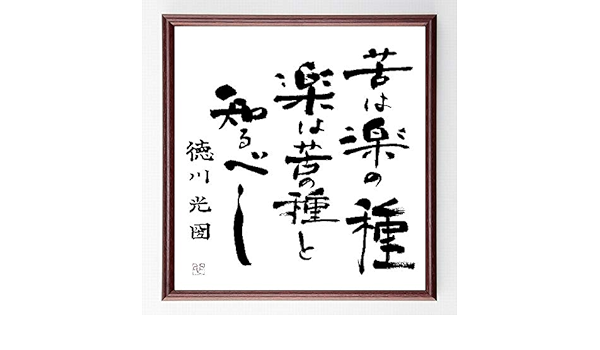 苦は楽の種
楽は苦の種と
知るべし
徳川光圀